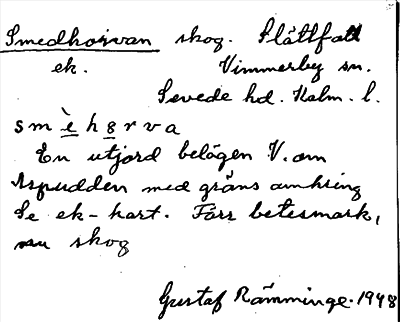 Smedhorvan skog. Slättfall
ek. Vimmerby sn.
Sevede hd. Kalm. l.
s m è h ɵ r v a
En utjord belägen V. om
Aspudden med gräns omkring
Se ek-kart. Förr betesmark,
nu skog
Gustaf Rämminge. 1948